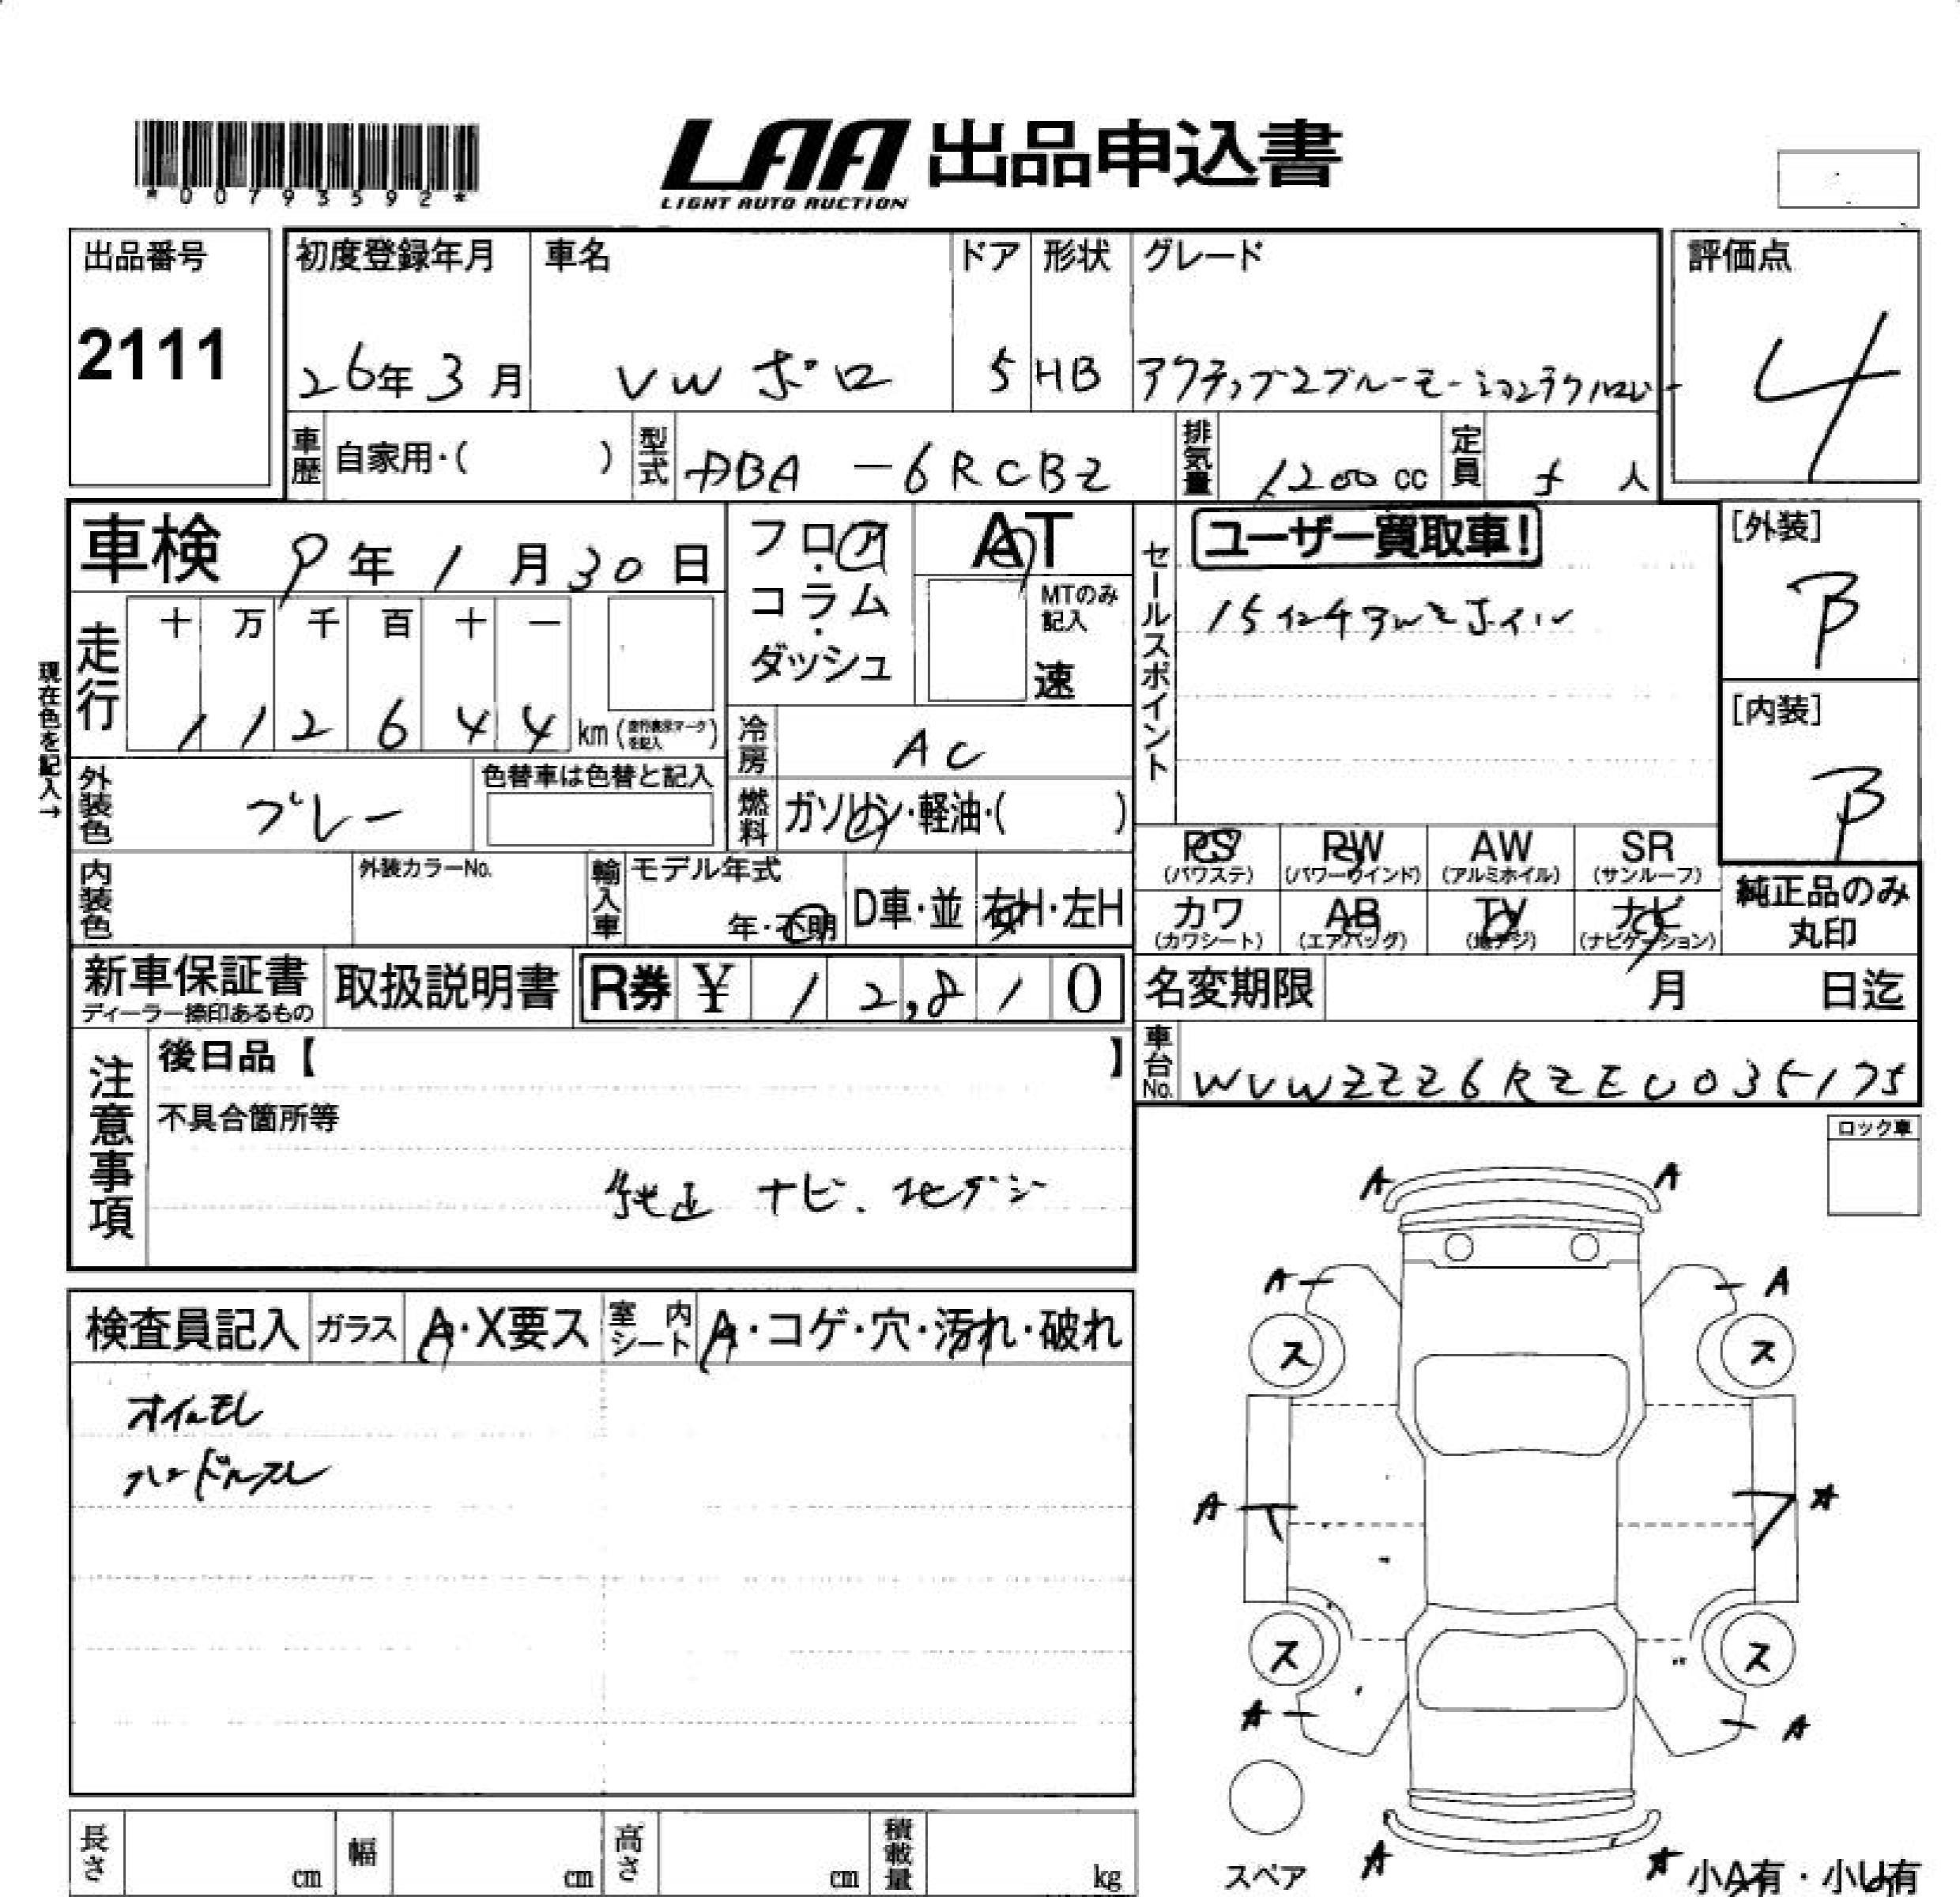 *00793592*
LAA 出品申込書
LIGHT AUTO AUCTION
出品番号
2111
初度登録年月
26年3月
車名
VW ポロ
ドア
5
形状
HB
グレード
評価点
4
車歴 自家用・( )
型式 DBA -6RCBZ
排気量 1200 cc
定員 5 人
車検 9年1月30日
フロア・コラム・ダッシュ
AT
MTのみ記入
速
セールスポイント
ユーザー買取車!
15インチアルミホイール
[外装]
B
[内装]
B
現在色を記入→
走行
十 万 千 百 十 一
1 1 2 6 4 4 km (走行表示マークを記入)
冷房 AC
外装色 グレー
色替車は色替と記入
燃料 ガソリン・軽油・( )
PS (パワステ)
PW (パワーウインド)
AW (アルミホイル)
SR (サンルーフ)
カワ (カワシート)
AB (エアバッグ)
TV (地デジ)
ナビ (ナビゲーション)
純正品のみ丸印
内装色
外装カラーNo.
輸入車
モデル年式
年・不明
D車・並
右H・左H
新車保証書
ディーラー捺印あるもの
取扱説明書
R券 ¥ 12,810
名変期限 月 日迄
注意事項
後日品【 】
不具合箇所等
純正 ナビ、地デジ
車台No. WVWZZZ6RZEU035175
ロック車
検査員記入
ガラス A・X要ス
室内シート A・コゲ・穴・汚れ・破れ
オイルモレ
ハンドルスレ
A A
A A
ス ス
A A
ス ス
A A
スペア
A A
小A有・小U有
長さ cm
幅 cm
高さ cm
積載量 kg